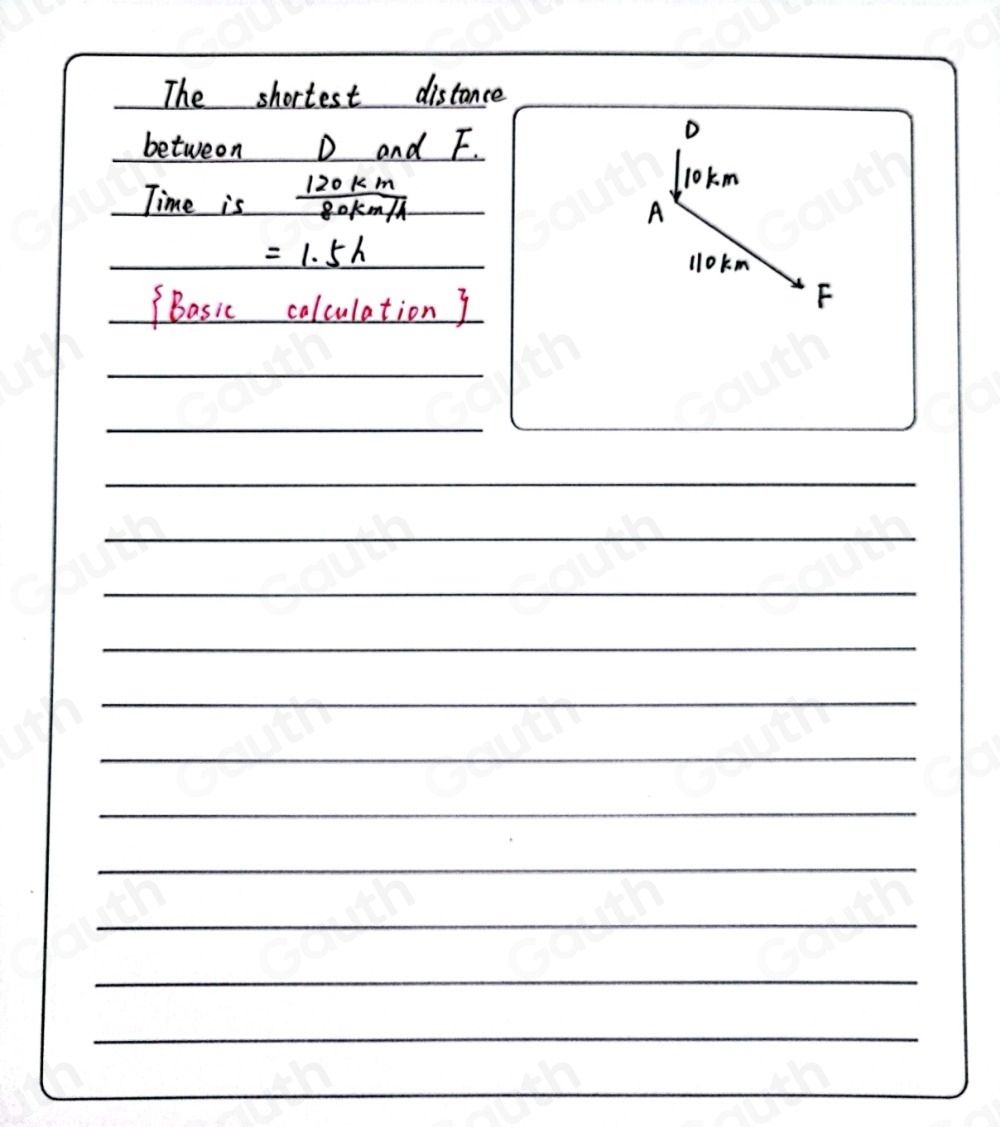 The shortest distance
between D and F.
Time is 120 km / 80km/h
= 1.5h
{Basic calculation}
D
10 km
A
110 km
F